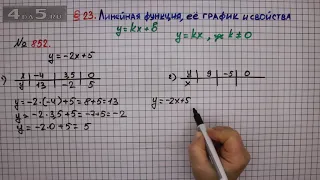 4ak5.ru
§ 23. Линейная функция, её график и свойства
y=kx+b
y=kx, k≠0
№ 852.
y=-2x+5
1) x -4 3,5 0
y 13 -2 5
2) y 9 -5 0
x
y=-2·(-4)+5=8+5=13
y=-2·3,5+5=-7+5=-2
y=-2·0+5=5
y=-2x+5